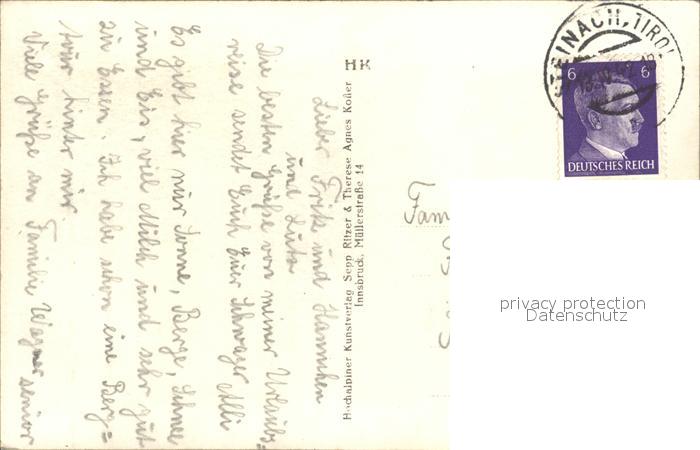 Lieber Fritz und Hannchen
und Lutz
Die besten Grüße von meiner Urlaubs=
reise sendet Euch Euer Schwager Alli
Es gibt hier nur Sonne, Berge, Schnee
und Eis, viel Milch und sehr gut
zu Essen. Ich habe schon eine Berg=
tour hinter mir.
Viele Grüße an Familie Wagner senior
HK
Hochalpiner Kunstverlag Sepp Ritzer & Therese Agnes Koller
Innsbruck, Müllerstraße 14
Fam
STEINACH, TIROL
6 6
DEUTSCHES REICH
privacy protection
Datenschutz